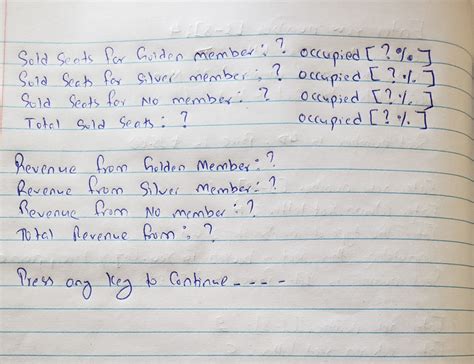 Sold Seats for Golden member : ? occupied [ ? % ]
Sold Seats for Silver member : ? occupied [ ? % ]
Sold Seats for No member : ? occupied [ ? % ]
Total Sold Seats : ? occupied [ ? % ]
Revenue from Golden Member : ?
Revenue from Silver member : ?
Revenue from No member : ?
Total Revenue from : ?
Press any key to Continue - - - -